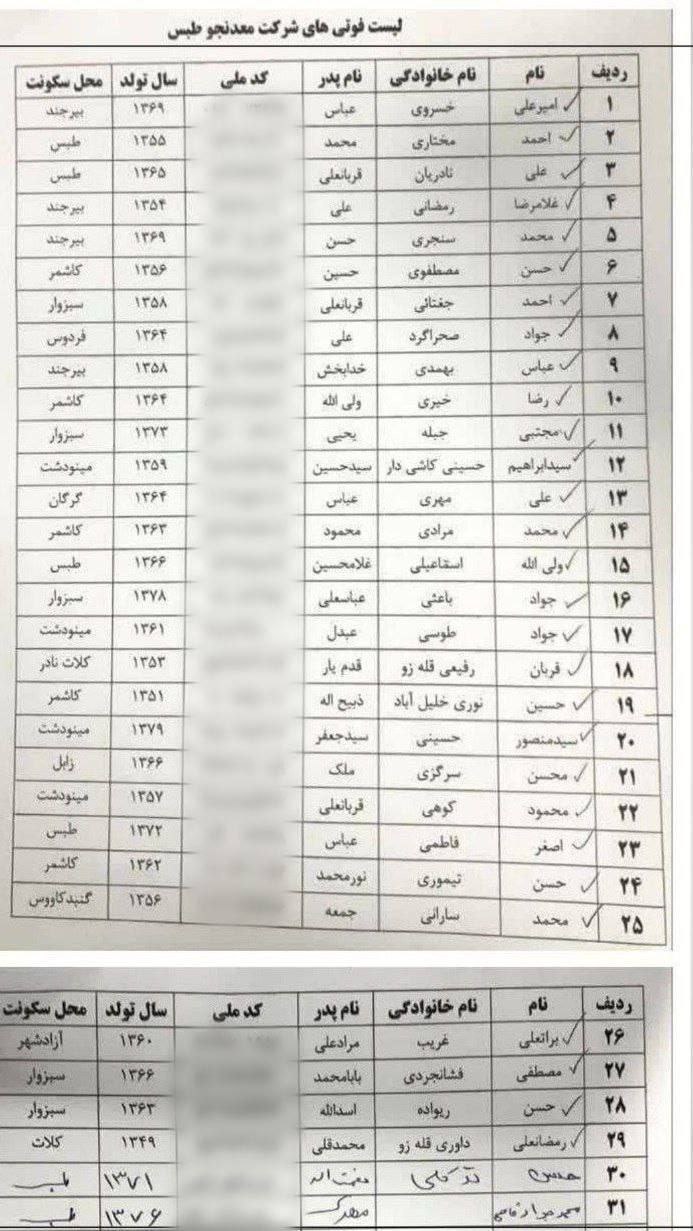 لیست فوتی های شرکت معدنجو طبس
ردیف نام نام خانوادگی نام پدر کد ملی سال تولد محل سکونت
۱ امیرعلی خسروی عباس ۱۳۶۹ بیرجند
۲ احمد مختاری محمد ۱۳۵۵ طبس
۳ علی نادریان قربانعلی ۱۳۶۵ طبس
۴ غلامرضا رمضانی علی ۱۳۵۴ بیرجند
۵ محمد سنجری حسن ۱۳۶۹ بیرجند
۶ حسن مصطفوی حسین ۱۳۵۶ کاشمر
۷ احمد جغتائی قربانعلی ۱۳۵۸ سبزوار
۸ جواد صحراگرد علی ۱۳۶۴ فردوس
۹ عباس بهمدی خدابخش ۱۳۵۸ بیرجند
۱۰ رضا خیری ولی الله ۱۳۶۴ کاشمر
۱۱ مجتبی جبله یحیی ۱۳۷۳ سبزوار
۱۲ سیدابراهیم حسینی کاشی دار سیدحسین ۱۳۵۹ مینودشت
۱۳ علی مهری عباس ۱۳۶۴ گرگان
۱۴ محمد مرادی محمود ۱۳۶۳ کاشمر
۱۵ ولی الله اسقاعیلی غلامحسین ۱۳۶۶ طبس
۱۶ جواد باعثی عباسعلی ۱۳۷۸ سبزوار
۱۷ جواد طوسی عبدل ۱۳۶۱ مینودشت
۱۸ قربان رفیعی قله زو قدم یار ۱۳۵۳ کلات نادر
۱۹ حسین نوری خلیل آباد ذبیح اله ۱۳۵۱ کاشمر
۲۰ سیدمنصور حسینی سیدجعفر ۱۳۷۹ مینودشت
۲۱ محسن سرگزی ملک ۱۳۶۶ زابل
۲۲ محمود کوهی قربانعلی ۱۳۵۷ مینودشت
۲۳ اصغر فاطمی عباس ۱۳۷۲ طبس
۲۴ حسن تیموری نورمحمد ۱۳۶۲ کاشمر
۲۵ محمد سارانی جمعه ۱۳۵۶ گنبدکاووس
ردیف نام نام خانوادگی نام پدر کد ملی سال تولد محل سکونت
۲۶ براتعلی غریب مرادعلی ۱۳۶۰ آزادشهر
۲۷ مصطفی فشانجردی بابامحمد ۱۳۶۶ سبزوار
۲۸ حسن ریواده اسدالله ۱۳۶۳ سبزوار
۲۹ رمضانعلی داوری قله زو محمدقلی ۱۳۴۹ کلات
۳۰ ۱۳۷۱
۳۱ ۱۳۷۶